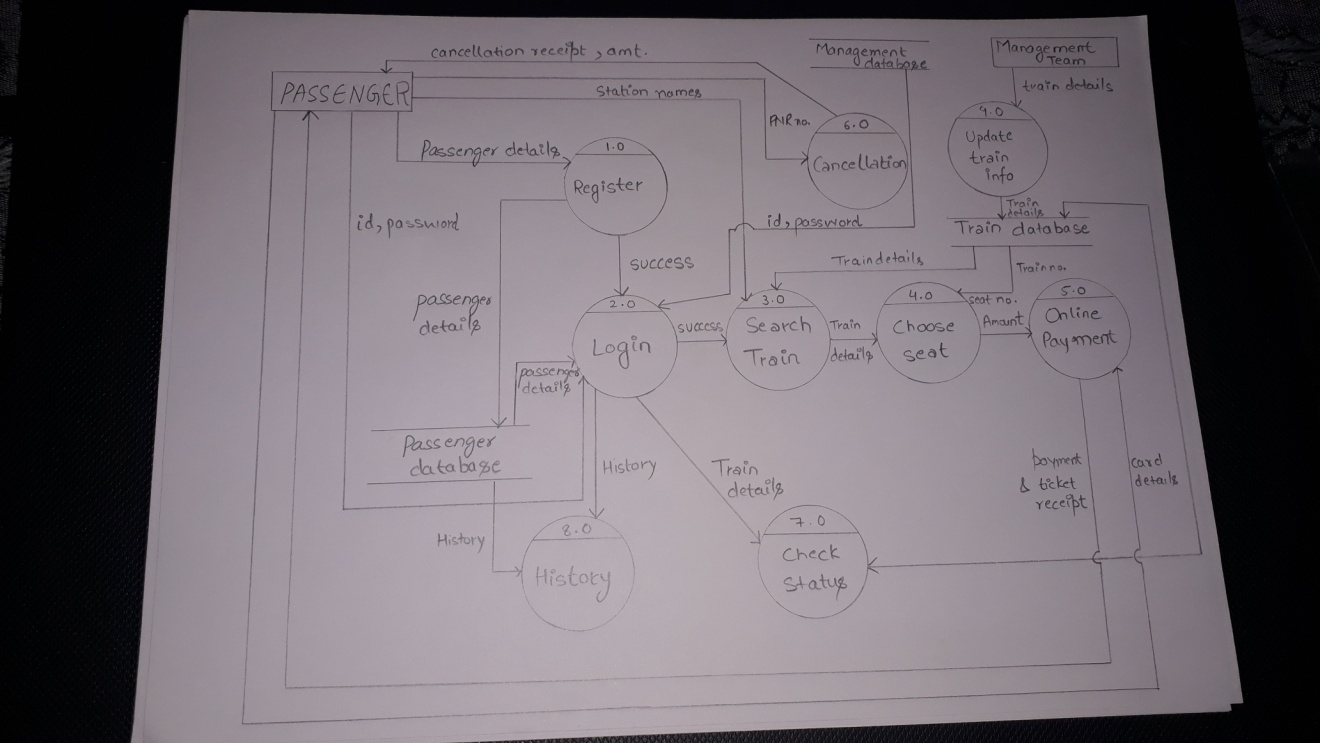 cancellation receipt , amt.
Management
database
Management
Team
PASSENGER
Station names
train details
PNR no.
6.0
Cancellation
9.0
Update
train
info
Passenger details
1.0
Register
id, password
id, password
Train
details
Train database
success
Train details
Train no.
passenger
details
2.0
Login
success
3.0
Search
Train
Train
details
4.0
Choose
seat
seat no.
Amount
5.0
Online
Payment
passenger
details
Passenger
database
History
Train
details
payment
& ticket
receipt
card
details
History
8.0
History
7.0
Check
Status